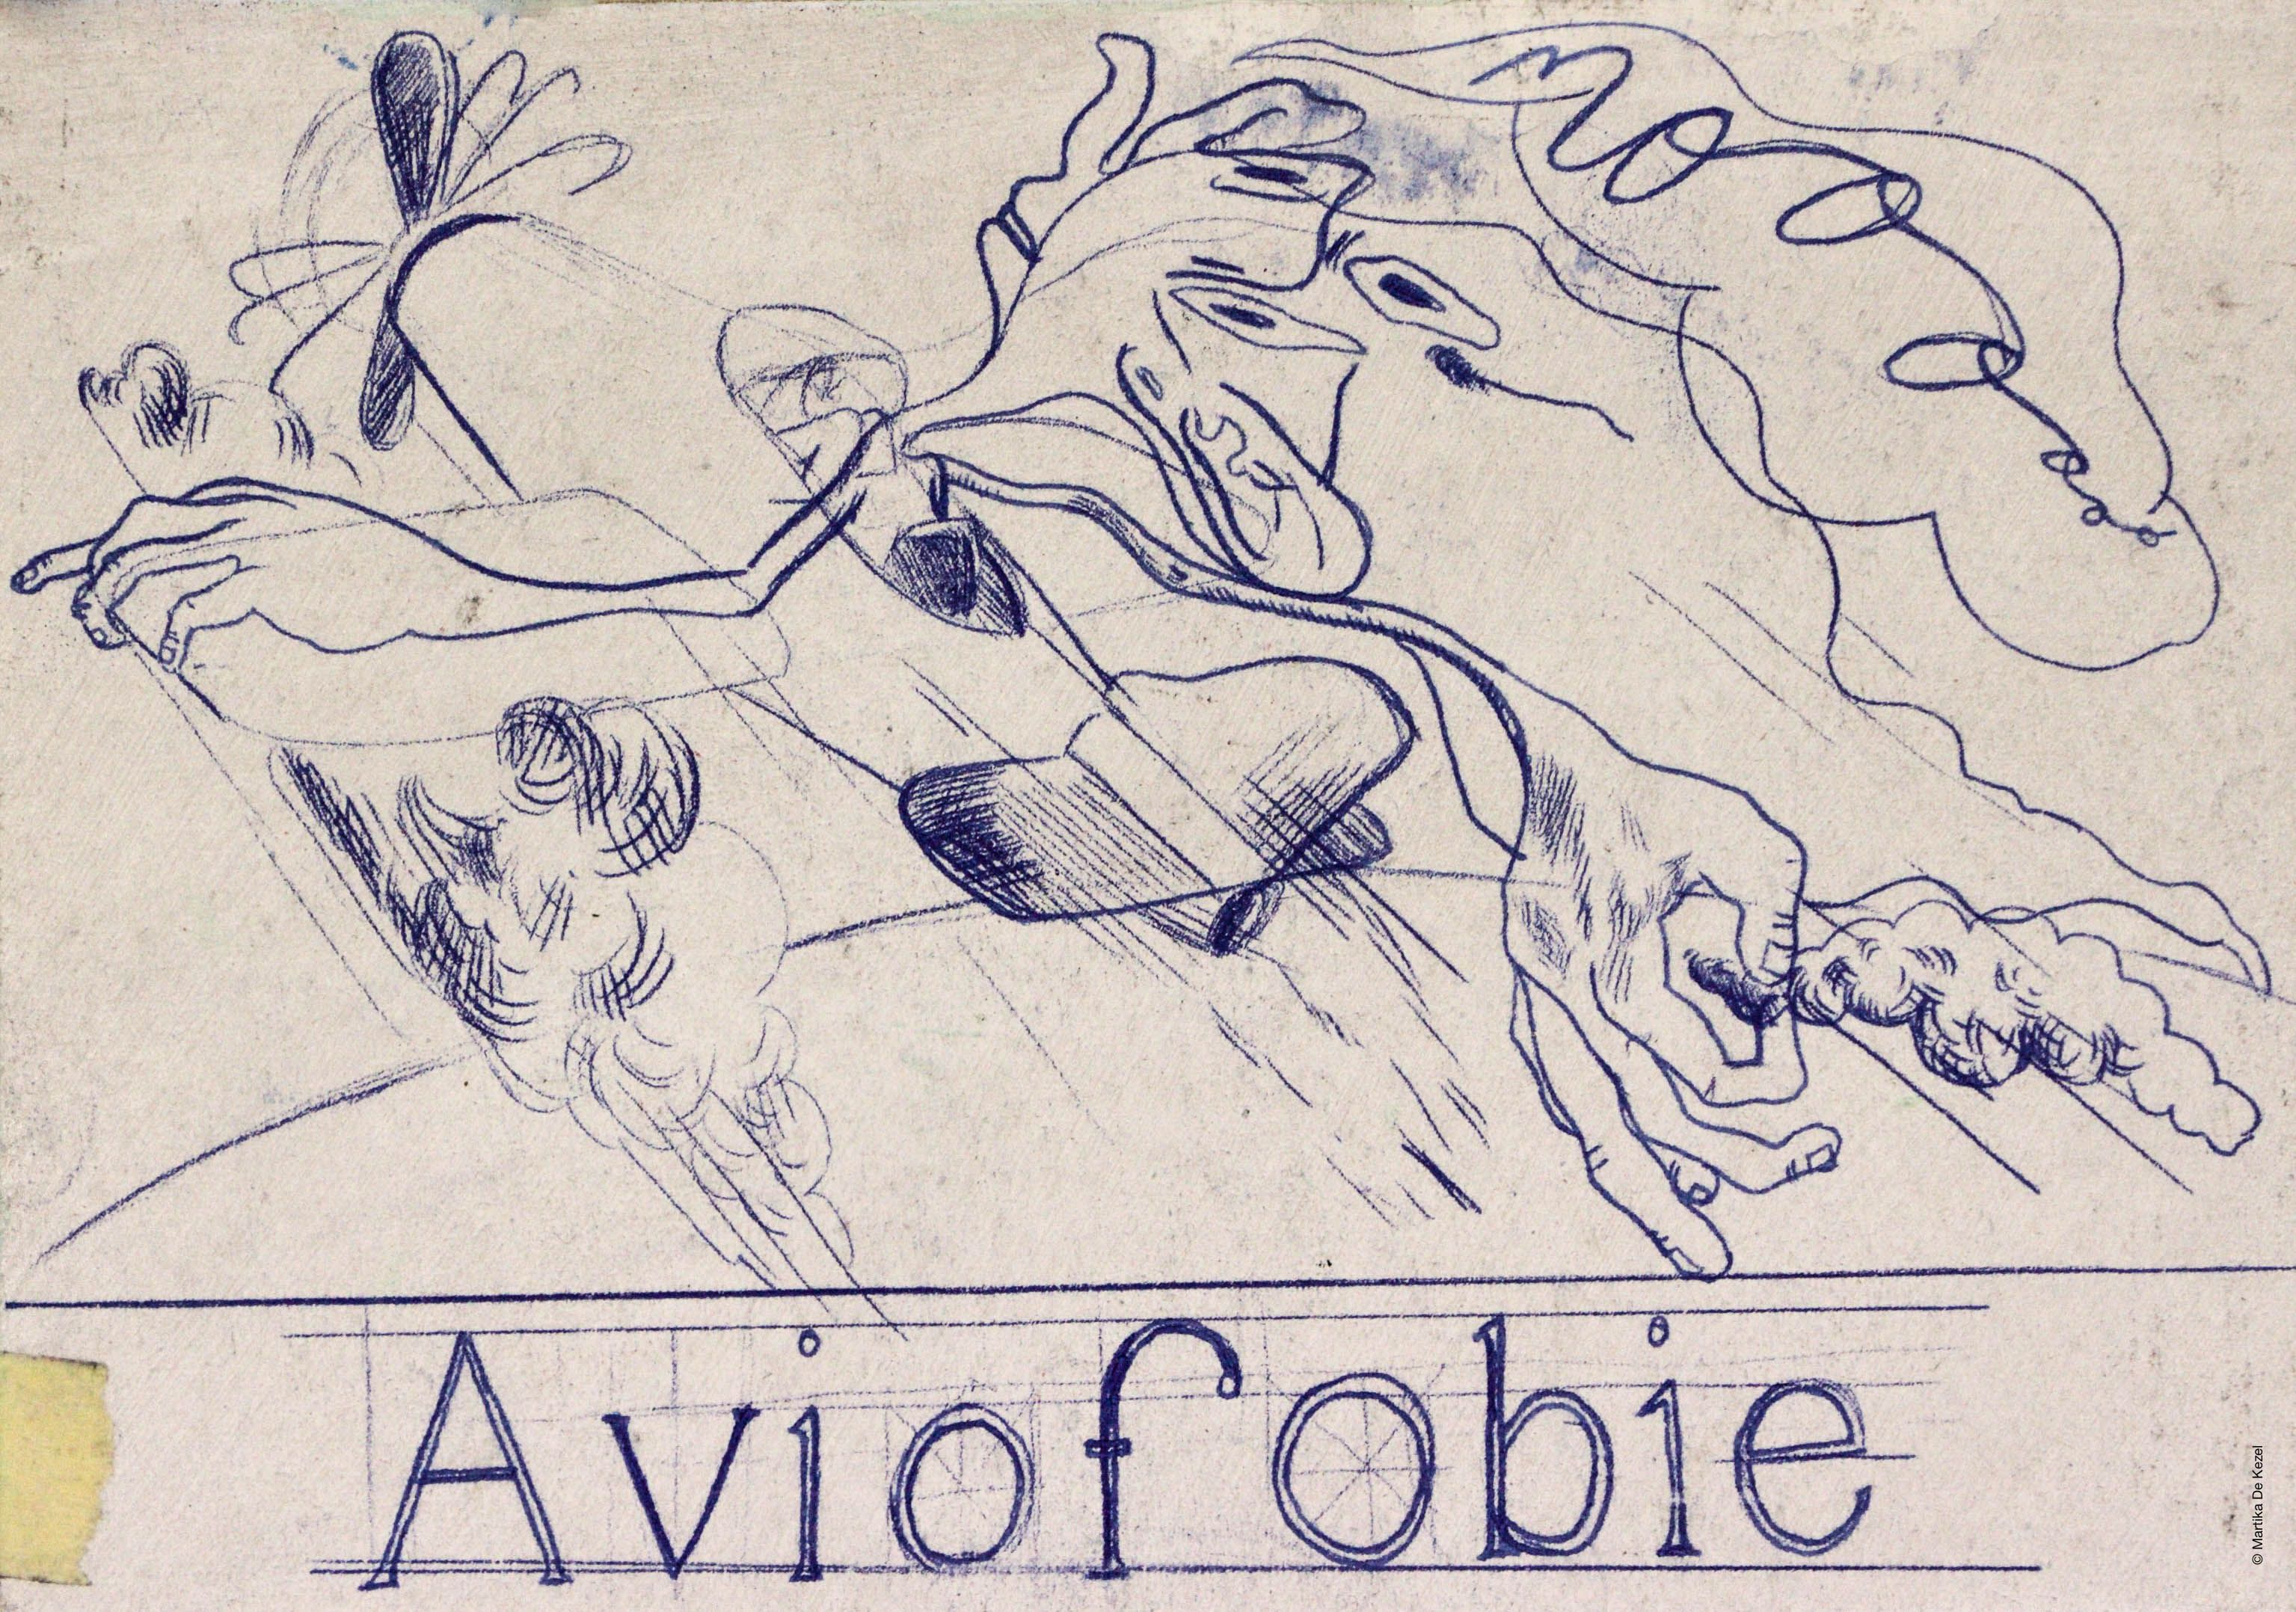 nooooo
Aviofobie
© Martika De Kezel